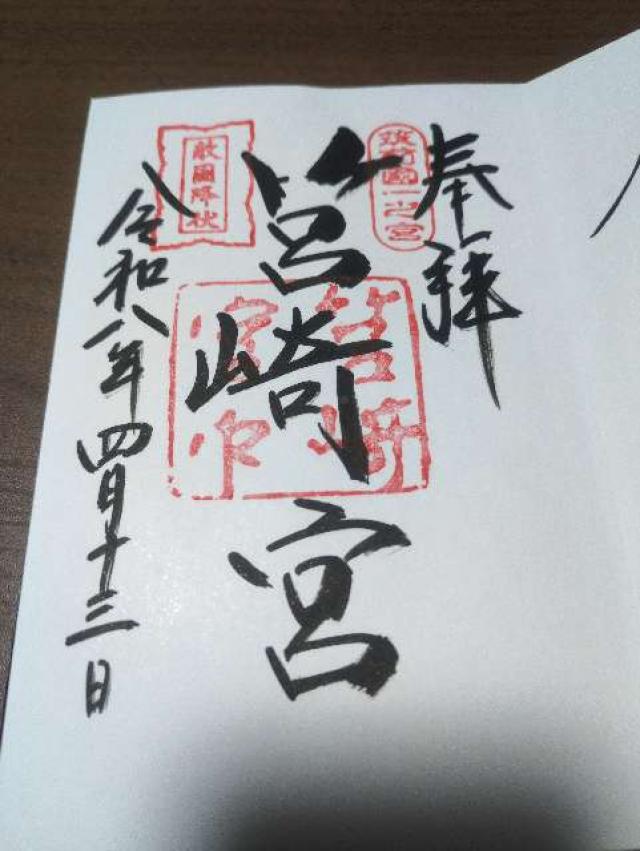 奉拝
筑前國一之宮
筥崎宮
敵國降伏
筥崎宮印
令和八年四月十三日